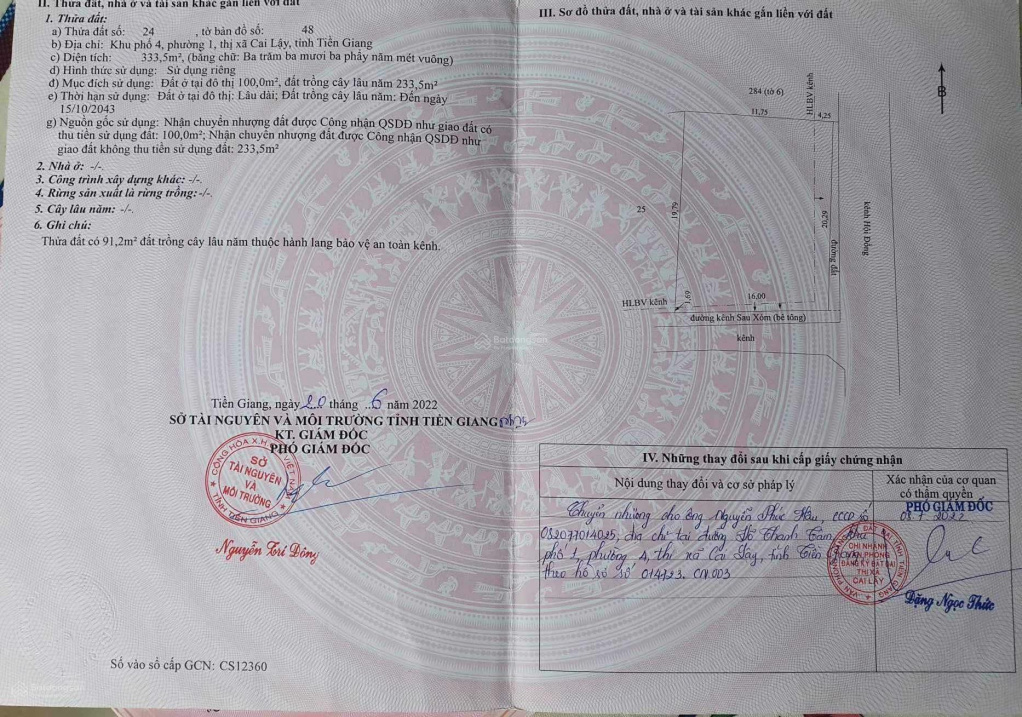 II. Thửa đất, nhà ở và tài sản khác gắn liền với đất
1. Thửa đất:
a) Thửa đất số: 24 , tờ bản đồ số: 48
b) Địa chỉ: Khu phố 4, phường 1, thị xã Cai Lậy, tỉnh Tiền Giang
c) Diện tích: 333,5m², (bằng chữ: Ba trăm ba mươi ba phẩy năm mét vuông)
d) Hình thức sử dụng: Sử dụng riêng
đ) Mục đích sử dụng: Đất ở tại đô thị 100,0m², đất trồng cây lâu năm 233,5m²
e) Thời hạn sử dụng: Đất ở tại đô thị: Lâu dài; Đất trồng cây lâu năm: Đến ngày
15/10/2043
g) Nguồn gốc sử dụng: Nhận chuyển nhượng đất được Công nhận QSDĐ như giao đất có
thu tiền sử dụng đất: 100,0m²; Nhận chuyển nhượng đất được Công nhận QSDĐ như
giao đất không thu tiền sử dụng đất: 233,5m²
2. Nhà ở: -/-.
3. Công trình xây dựng khác: -/-.
4. Rừng sản xuất là rừng trồng:-/-.
5. Cây lâu năm: -/-.
6. Ghi chú:
Thửa đất có 91,2m² đất trồng cây lâu năm thuộc hành lang bảo vệ an toàn kênh.
Tiền Giang, ngày 20 tháng 6 năm 2022
SỞ TÀI NGUYÊN VÀ MÔI TRƯỜNG TỈNH TIỀN GIANG
KT. GIÁM ĐỐC
PHÓ GIÁM ĐỐC
CỘNG HÒA X.H.C.N VIỆT NAM
SỞ
TÀI NGUYÊN
VÀ
MÔI TRƯỜNG
TỈNH TIỀN GIANG
Nguyễn Trí Đông
Số vào sổ cấp GCN: CS12360
III. Sơ đồ thửa đất, nhà ở và tài sản khác gắn liền với đất
B
284 (tờ 6)
11,75
HLBV kênh
4,25
25
19,79
20,29
đường đất
kênh Hội Đồng
HLBV kênh
1,69
16,00
đường kênh Sau Xóm (bê tông)
kênh
Batdongsan
IV. Những thay đổi sau khi cấp giấy chứng nhận
Nội dung thay đổi và cơ sở pháp lý
Xác nhận của cơ quan
có thẩm quyền
PHÓ GIÁM ĐỐC
Chuyển nhượng cho ông Nguyễn Phúc Hậu, CCCD số
082077014025, địa chỉ tại đường Võ Thanh Tâm, khu
phố 1, phường 4, thị xã Cai Lậy, tỉnh Tiền
theo hồ sơ số 014723. CN.003
CHI NHÁNH
VĂN PHÒNG
ĐĂNG KÝ ĐẤT ĐAI
THỊ XÃ
CAI LẬY
Đặng Ngọc Thức